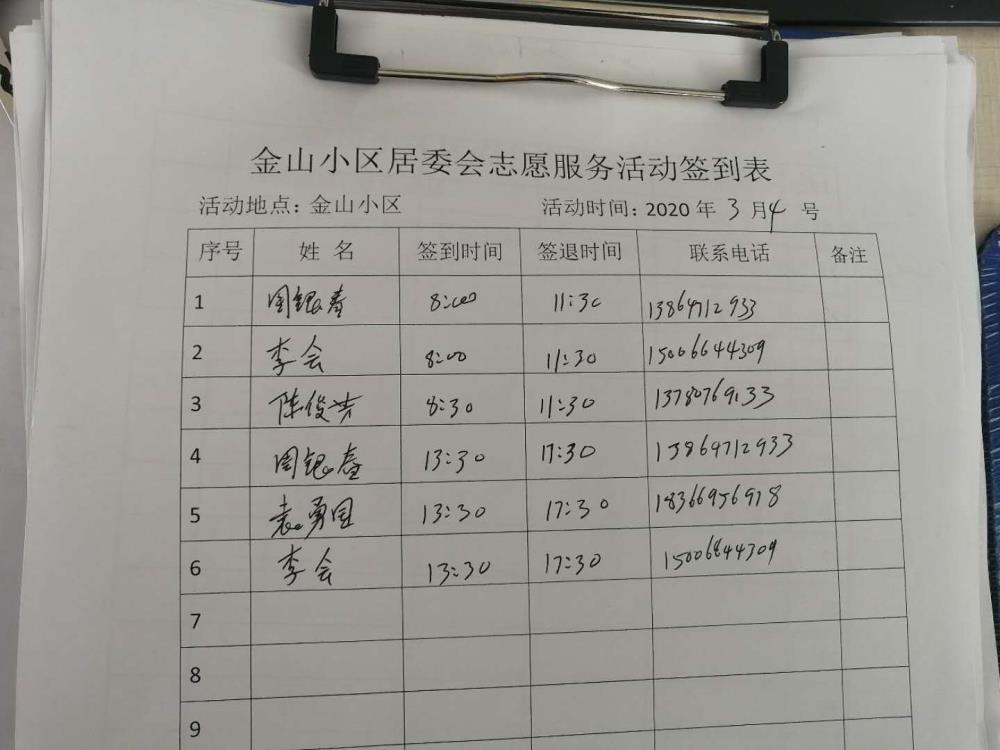 金山小区居委会志愿服务活动签到表
活动地点：金山小区 活动时间：2020 年 3 月 4 号
序号 姓 名 签到时间 签退时间 联系电话 备注
1 周银春 8:00 11:30 13864712933
2 李会 8:00 11:30 15006644309
3 陈俊芳 8:30 11:30 13780769133
4 周银春 13:30 17:30 13864712933
5 袁勇国 13:30 17:30 18366956978
6 李会 13:30 17:30 15006644309
7
8
9